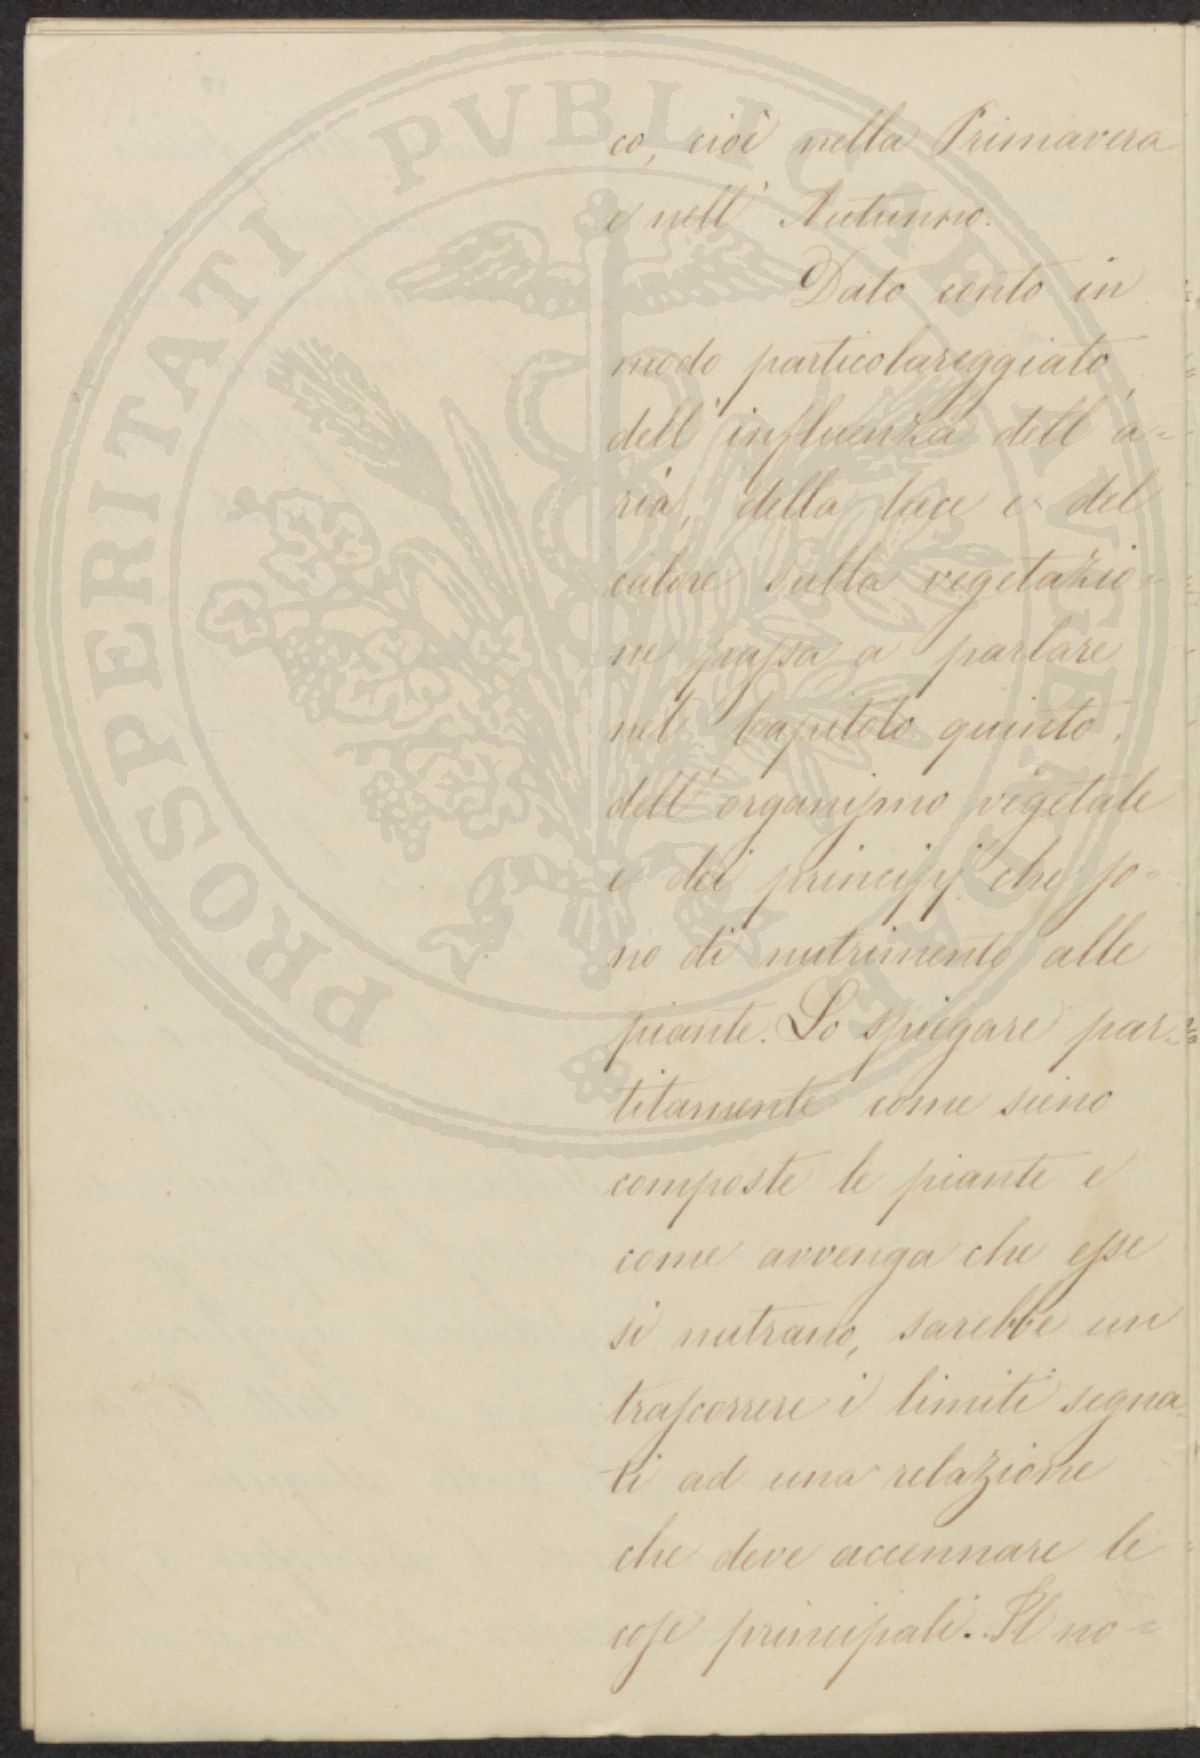 co, cioè nella Primavera
e nell' Autunno.
Dato conto in
modo particolareggiato
dell' influenza dell' a=
ria, della luce e del
calore sulla vegetazio=
ne passa a parlare
nel Capitolo quinto,
dell' organismo vegetale
e dei principj che so=
no di nutrimento alle
piante. Lo spiegare par=
titamente come sieno
composte le piante e
come avvenga che esse
si nutrano, sarebbe un
trascorrere i limiti segna=
ti ad una relazione
che deve accennare le
cose principali. Il no=
PROSPERITATI PVBLICAE